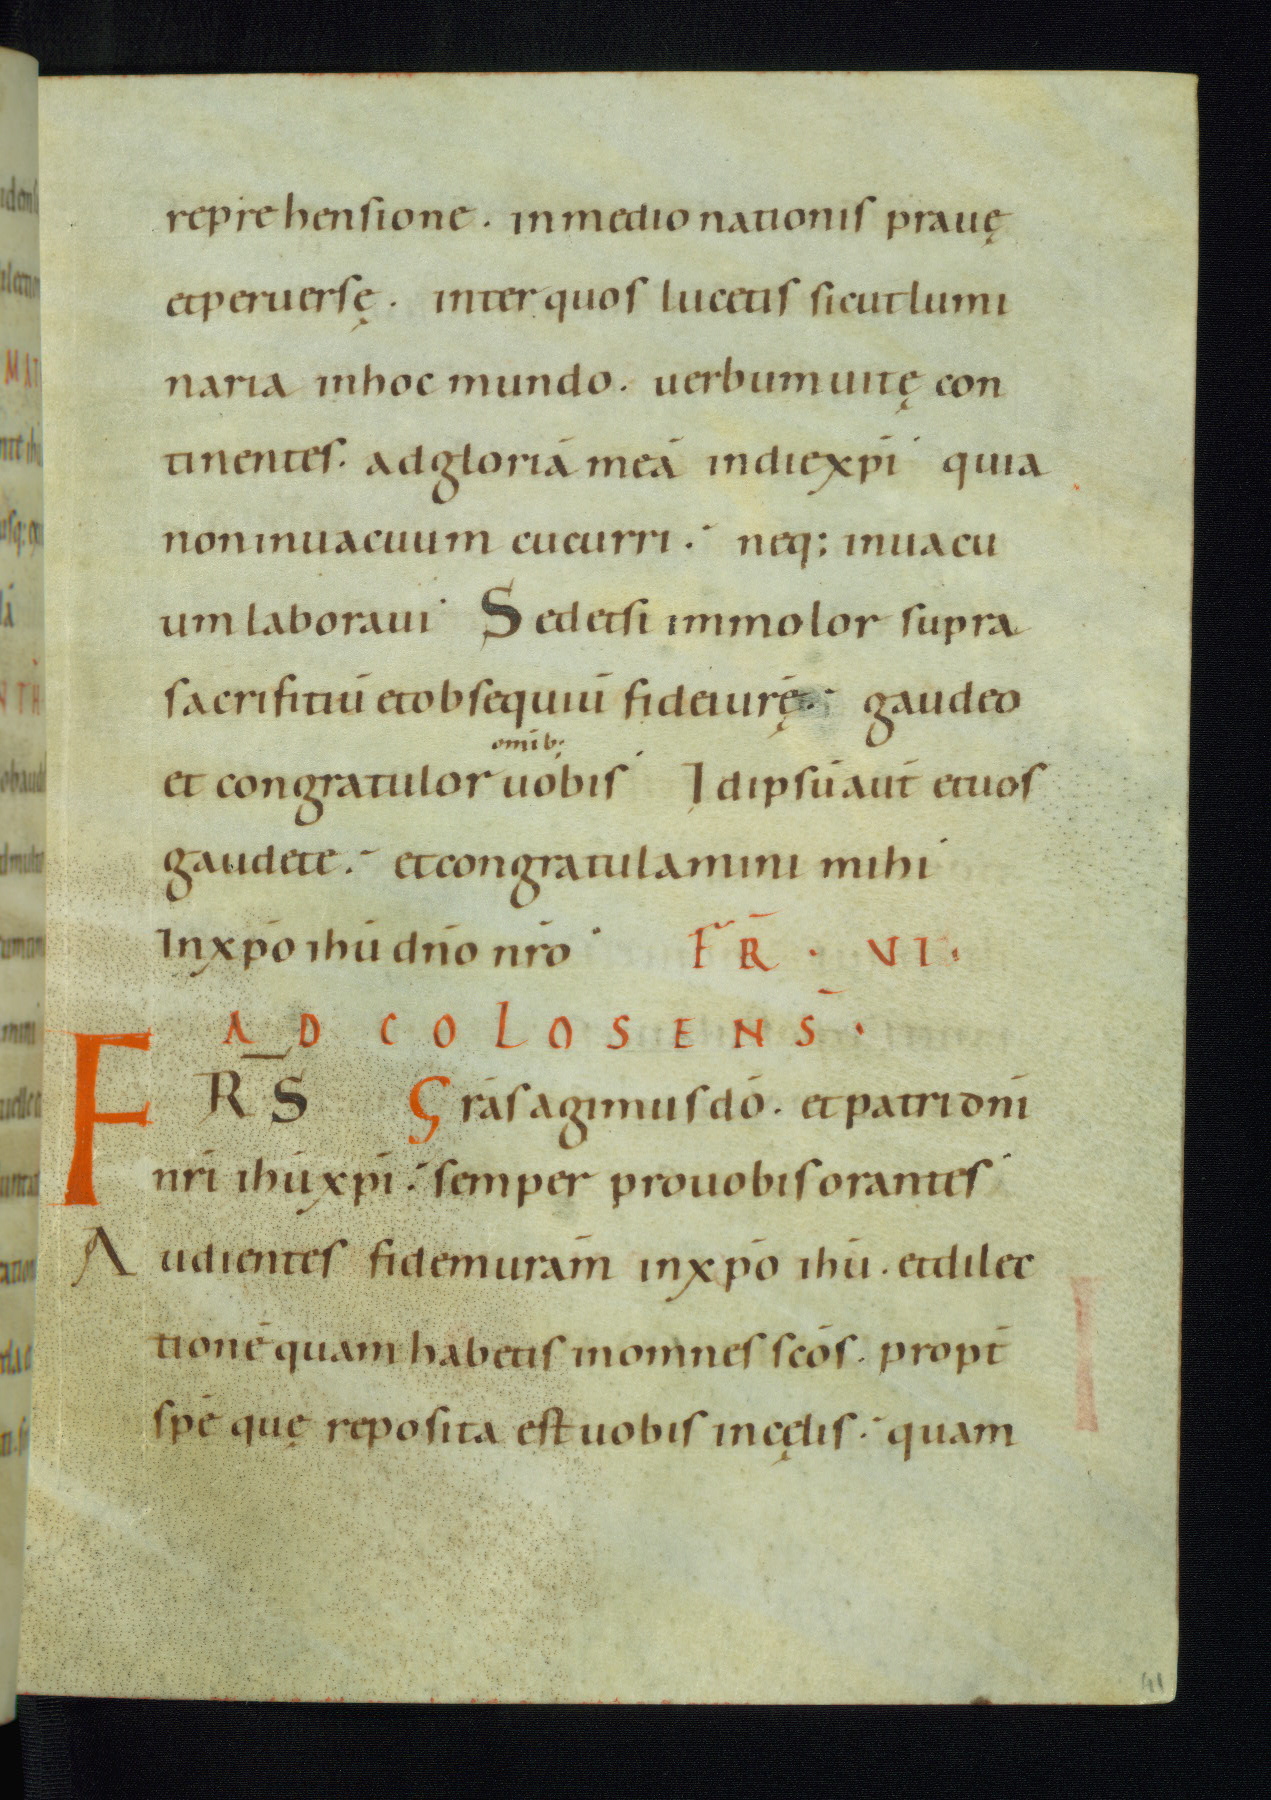 reprehensione. inmedio nationis prauę
etperuersę. inter quos lucetis sicutlumi
naria inhoc mundo. uerbumuitę con
tinentes. adgloriā meā indiexp̄i quia
noninuacuum cucurri. neq; inuacu
um laboraui Sedetsi immolor supra
sacrifitiū etobsequiū fideiurę̄. gaudeo
omīb;
et congratulor uobis Idipsūaut̄ etuos
gaudete. etcongratulamini mihi
Inxp̄o ihū dn̄o nr̄o FR̄. VI.
AD COLOSENS̄.
FR̄S Grās̄agimusdō. etpatridn̄i
nr̄i ihūxp̄i. semper prouobisorantes
Audientes fidemurām̄ inxp̄o ihū. etdilec
tionē quam habetis inomnes sc̄os. propt̄
spē quę reposita est uobis incęlis. quam
41